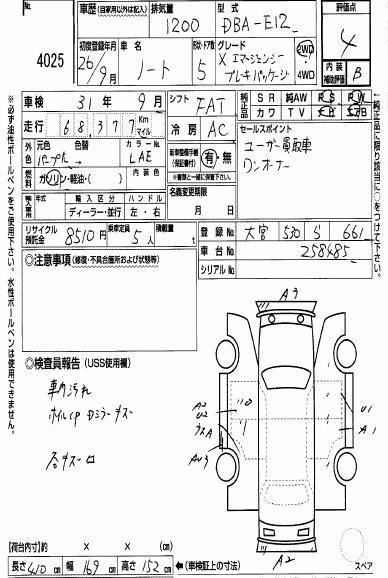 No.
4025
車歴 (自家用以外は記入)
排気量
1200
型式
DBA-E12
評価点
4
内装補助評価 B
初度登録年月
26/9月
車名
ノート
形状・ドア数
5
グレード
X エマージェンシー
ブレーキパッケージ
2WD・4WD
車検 31年 9月
走行 68,377 Km マイル
シフト FAT
冷房 AC
純正品 SR 純AW PS PW
カワ TV
ABS
外色 元色
パープル→
カラーNo.
LAE
色替
内装色
燃料 ガソリン・軽油・( )
新車整備手帳(保証書付) 有・無
※書類と一緒に保管下さい。
名義変更期限
月 日
セールスポイント
ユーザー買取車
ワンオーナー
輸入車用 年式
輸入区分
ディーラー・並行
ハンドル
左・右
リサイクル預託金 8510円
乗車定員 5人
積載量 t
登録No. 大宮 530 S 661
車台No. 258485
シリアルNo.
◎注意事項 (修復・不具合箇所および状態等)
◎検査員報告 (USS使用欄)
車内汚れ
ホイルCP ロミラーキズ
各キズ一口
A3
A2
U2
U1
A1
A2
スペア
【荷台内寸】 × × (cm)
長さ 410 cm 幅 169 cm 高さ 152 cm
(車検証上の寸法)
※必ず油性ボールペンをご使用下さい。水性ボールペンは使用できません。
純正品に限り該当に○をつけて下さい。